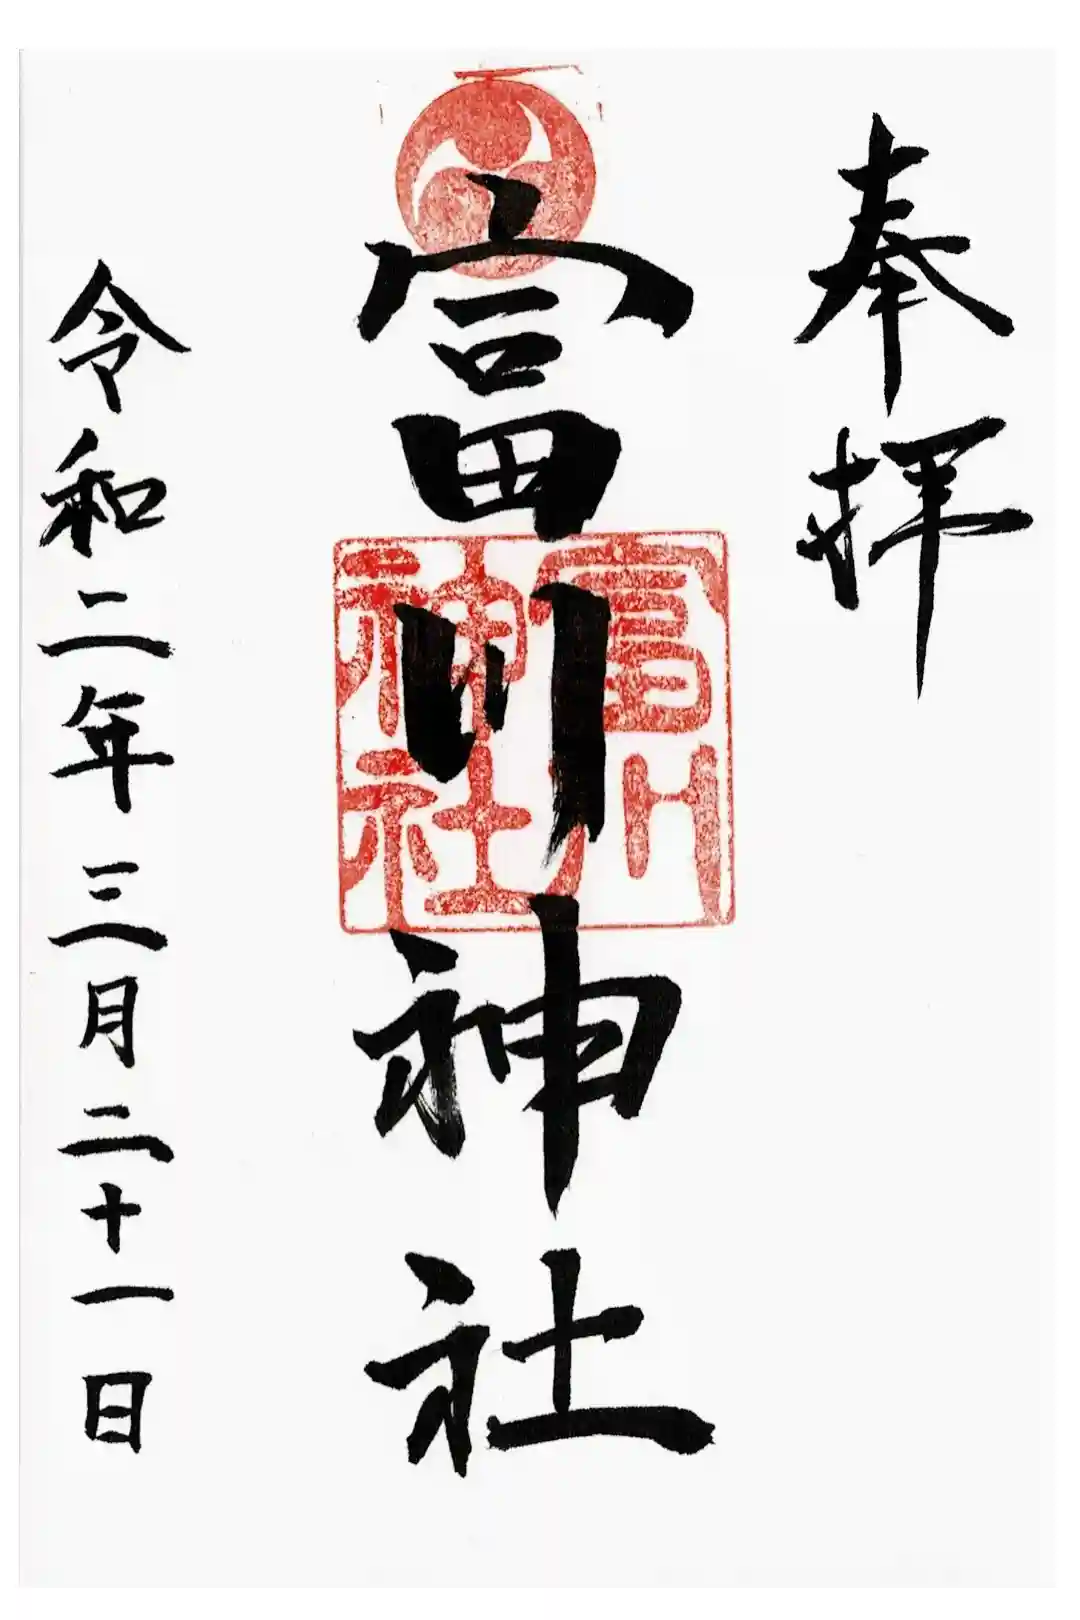 奉拝
富川神社
富川
神社
令和二年三月二十一日